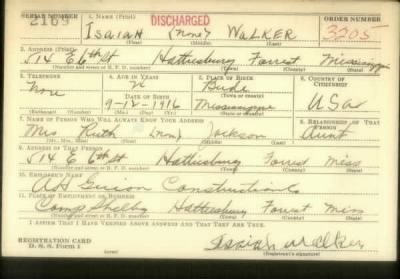 SERIAL NUMBER 1. NAME (Print) DISCHARGED ORDER NUMBER
2169 Isaiah (None) Walker 3205
(First) (Middle) (Last)
2. ADDRESS (Print)
514 E 6th St Hattiesburg Forrest Mississippi
(Number and street or R. F. D. number) (Town) (County) (State)
3. TELEPHONE 4. AGE IN YEARS 5. PLACE OF BIRTH 6. COUNTRY OF CITIZENSHIP
None Bude
DATE OF BIRTH (Town or county)
9-12-1916 Mississippi USA
(Exchange) (Number) (Mo.) (Day) (Yr.) (State or country)
7. NAME OF PERSON WHO WILL ALWAYS KNOW YOUR ADDRESS 8. RELATIONSHIP OF THAT PERSON
Mrs Ruth (Non) Jackson Aunt
(Mr., Mrs., Miss) (First) (Middle) (Last)
9. ADDRESS OF THAT PERSON
514 E 6th St Hattiesburg Forrest Miss
(Number and street or R. F. D. number) (Town) (County) (State)
10. EMPLOYER'S NAME
Construction Co
11. PLACE OF EMPLOYMENT OR BUSINESS
Camp Shelby Hattiesburg Forrest Miss
(Number and street or R. F. D. number) (Town) (County) (State)
I AFFIRM THAT I HAVE VERIFIED ABOVE ANSWERS AND THAT THEY ARE TRUE.
REGISTRATION CARD
D. S. S. Form 1 Isaiah Walker
(Registrant's signature)